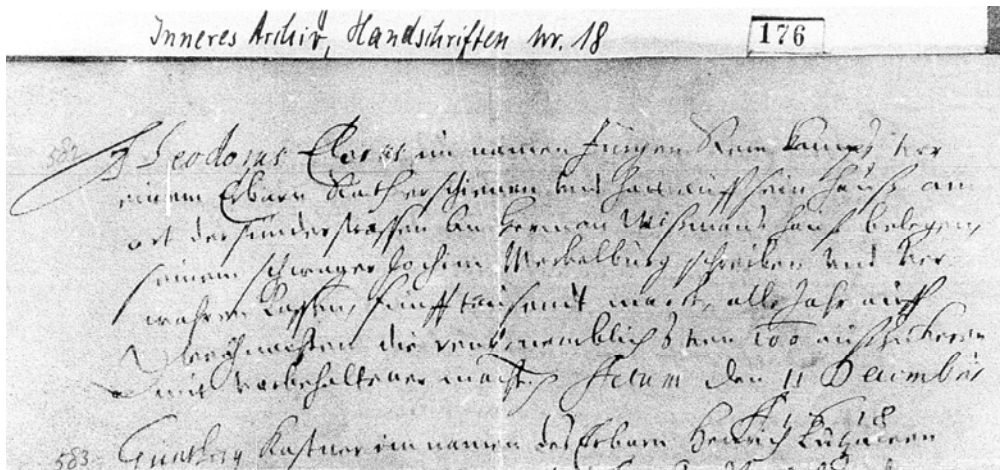 Inneres Archiv, Handschriften nr. 18
176
582
Theodorus im namen Jürgen vor
einem Erbarn Rath erschienen und hat auff sein Hauß am
ort der sünderstrassen an Herman Wißmans Hauß belegen,
seinem schwager Jochim Meckelburg schreiben und ver
wahren lassen, fünfftausendt marck, alle Jahr auff
Weihnachten die rente nemblich von 100
mit vorbehaltener macht Actum den 11 Decembris
18
583 Kastner im namen des Erbarn Heinrich